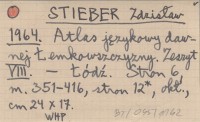 STIEBER Zdzisław
1964. Atlas językowy daw-
nej Łemkowszczyzny. Zeszyt
VIII. – Łódź. Stron 6,
m. 351-416, stron 12*, okł.,
cm 24 x 17.
WHP